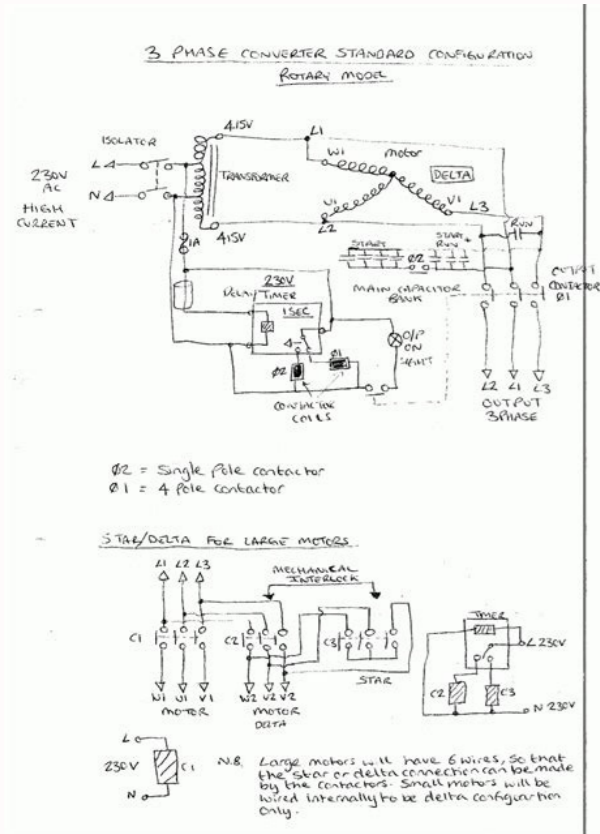 3 PHASE CONVERTER STANDARD CONFIGURATION
ROTARY MODEL
ISOLATOR
415V
L1
W1
motor
L
230V
AC
N
HIGH
CURRENT
TRANSFORMER
DELTA
V1
L3
U1
L2
415V
1A
RUN
START
START +
RUN
Ø2
MAIN CAPACITOR
BANK
OUTPUT
CONTACTOR
Ø1
230V
DELAY TIMER
1SEC
O/P
ON
Ø1
Ø2
CONTACTOR
COILS
L2 L1 L3
OUTPUT
3 PHASE
Ø2 = Single Pole contactor
Ø1 = 4 Pole contactor
STAR/DELTA FOR LARGE MOTORS
L1 L2 L3
MECHANICAL
INTERLOCK
TIMER
C1
C2
C3
L 230V
STAR
C2
C3
W1 U1 V1
MOTOR
W2 V2 V2
MOTOR
DELTA
N 230V
L
230V
C1
N
N.B. Large motors will have 6 wires, so that
the star or delta connection can be made
by the contactors. Small motors will be
wired internally to be delta configurtion
only.